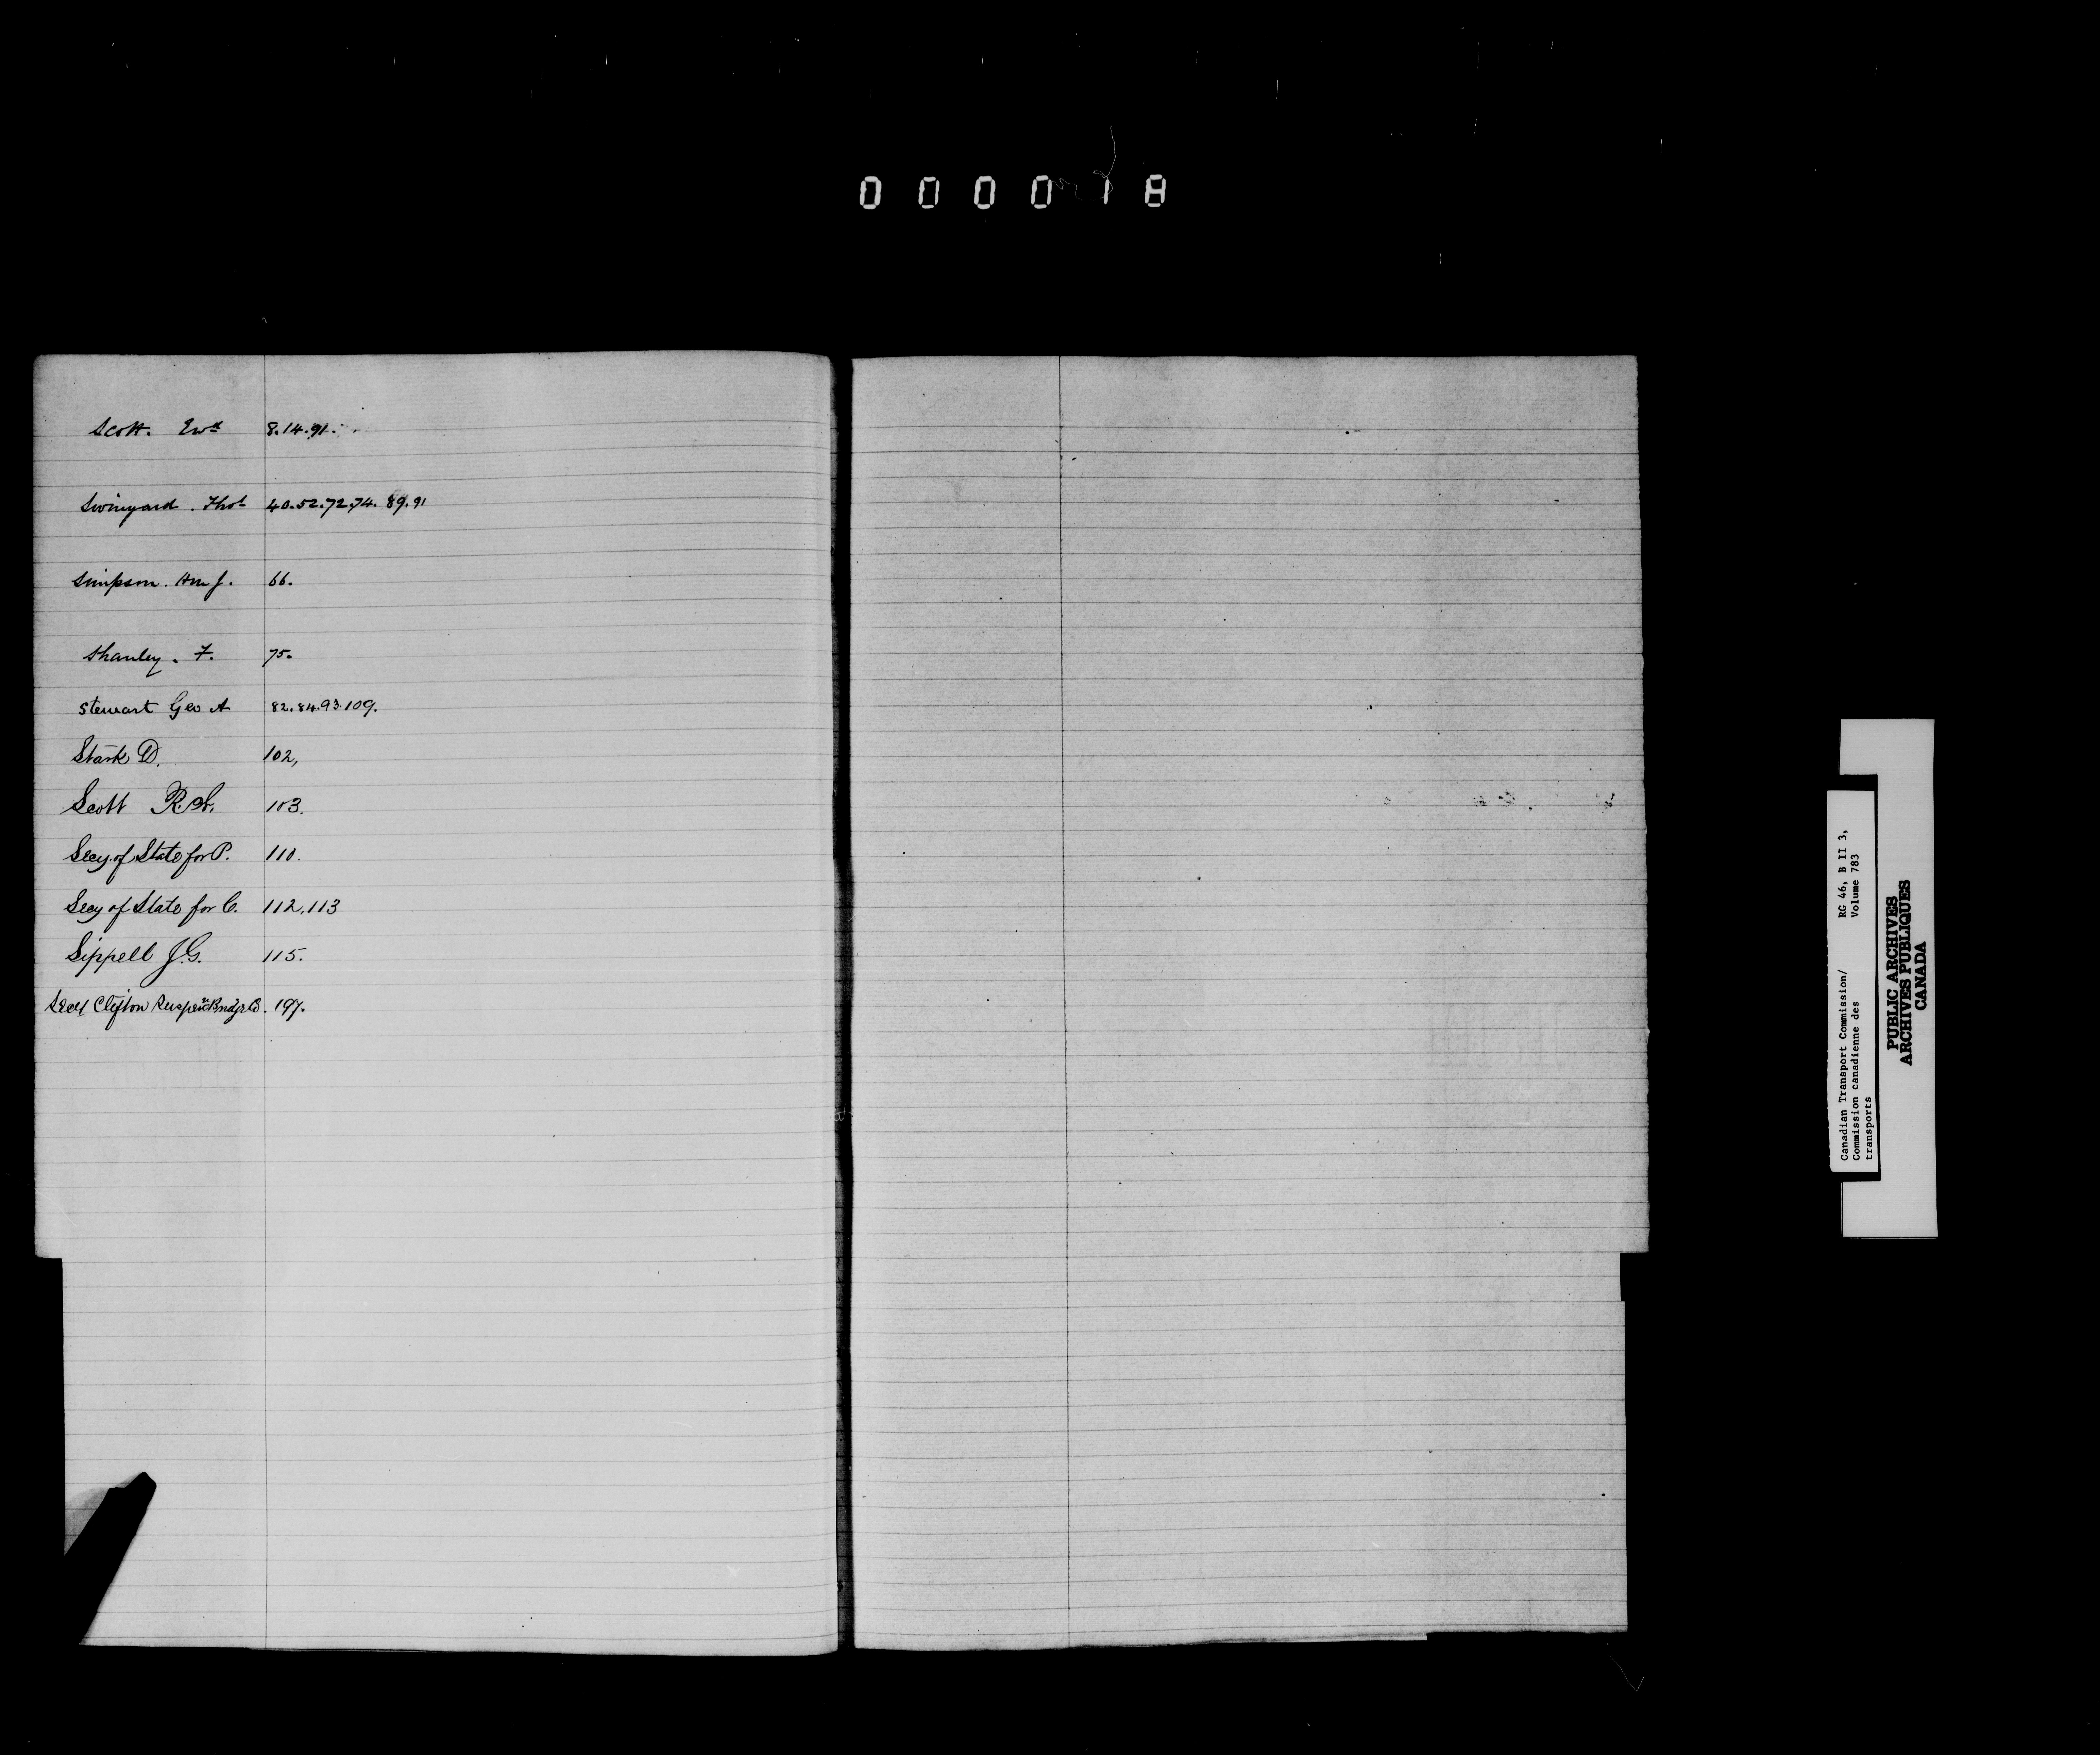 000018
Scott. Ewd 8.14.91.
Swinyard. Thos 40.52.72.74.89.91
Simpson. Wm J. 66.
Shanley. F. 75.
Stewart Geo A 82.84.93.109.
Stark D. 102,
Scott R. W. 103.
Secy. of State for P. 110.
Secy of State for C. 112,113
Sippell J.G. 115.
Secy Clifton Suspen Bridge Co. 197.
Canadian Transport Commission/ RG 46, B II 3,
Commission canadienne des Volume 783
transports
PUBLIC ARCHIVES
ARCHIVES PUBLIQUES
CANADA